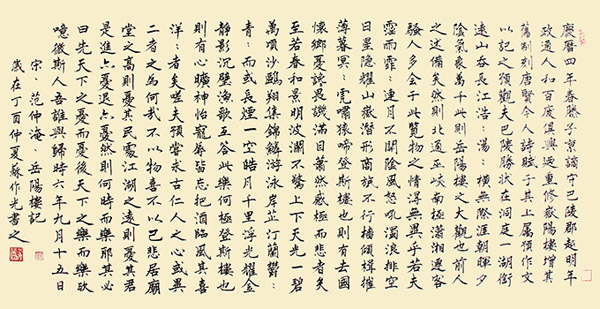 慶曆四年春滕子京謫守巴陵郡越明年
政通人和百廢俱興廼重修嶽陽樓增其
舊制刻唐賢今人詩賦于其上屬予作文
以記之予觀夫巴陵勝狀在洞庭一湖銜
遠山吞長江浩:湯:橫無際涯朝暉夕
陰氣象萬千此則岳陽樓之大觀也前人
之述備矣然則北通巫峽南極瀟湘遷客
騷人多會于此覽物之情得無異乎若夫
霪雨霏:連月不開陰風怒吼濁浪排空
日星隱耀山嶽潛形商旅不行檣傾楫摧
薄暮冥:虎嘯猿啼登斯樓也則有去國
懷鄉憂讒畏譏滿目蕭然感極而悲者矣
至若春和景明波瀾不驚上下天光一碧
萬頃沙鷗翔集錦鱗游泳岸芷汀蘭鬱:
青:而或長煙一空皓月千里浮光耀金
靜影沉璧漁歌互答此樂何極登斯樓也
則有心曠神怡寵辱皆忘把酒臨風其喜
洋:者矣嗟夫予嘗求古仁人之心或異
二者之為何哉不以物喜不以己悲居廟
堂之高則憂其民處江湖之遠則憂其君
是進亦憂退亦憂然則何時而樂耶其必
曰先天下之憂而憂後天下之樂而樂歟
噫微斯人吾誰與歸時六年九月十五日
宋:范仲淹 岳陽樓記
歲在丁酉仲夏蘇作光書之